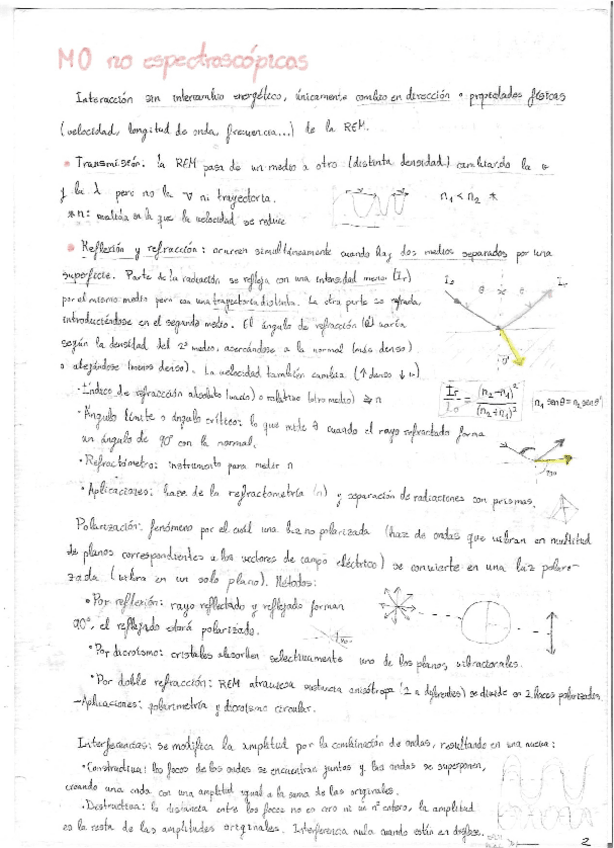 MO no espectroscópicas
Interacción sin intercambio energético, únicamente cambio en dirección o propiedades físicas
(velocidad, longitud de onda, frecuencia...) de la REM.
• Transmisión: la REM pasa de un medio a otro (distinta densidad) cambiando la v
y la λ pero no la ν ni trayectoria.
n₁ < n₂ *
* n: medida en la que la velocidad se reduce
• Reflexión y refracción: ocurren simultáneamente cuando hay dos medios separados por una
superficie. Parte de la radiación se refleja con una intensidad menor (Ir)
por el mismo medio pero con una trayectoria distinta. La otra parte se refracta,
introduciéndose en el segundo medio. El ángulo de refracción (θ') varía
según la densidad del 2º medio, acercándose a la normal (más denso)
o alejándose (menos denso). La velocidad también cambia (↑ denso ↓ v)
I₀ θ θ Ir
θ'
• Índice de refracción absoluto (vacío) o relativo (otro medio) ⇒ n
Ir/I₀ = (n₂-n₁)²/(n₂+n₁)²
n₁ senθ = n₂ senθ'
• Ángulo límite o ángulo crítico: lo que mide θ cuando el rayo refractado forma
un ángulo de 90º con la normal.
90º
• Refractómetro: instrumento para medir n
• Aplicaciones: base de la refractometría (n) y separación de radiaciones con prismas.
Polarización: fenómeno por el cuál una luz no polarizada (haz de ondas que vibran en multitud
de planos correspondientes a los vectores de campo eléctrico) se convierte en una luz polari-
zada (vibra en un solo plano). Métodos:
• Por reflexión: rayo reflectado y reflejado forman
90º, el reflejado estará polarizado.
• Por dicroísmo: cristales absorben selectivamente uno de los planos, vibracionales.
• Por doble refracción: REM atraviesa sustancia anisótropa se divide en 2 haces polarizados
- Aplicaciones: polarimetría y dicroísmo circular.
Interferencias: se modifica la amplitud por la combinación de ondas, resultando en una nueva:
• Constructiva: los focos de las ondas se encuentran juntos y las ondas se superponen,
creando una onda con una amplitud igual a la suma de las originales.
• Destructiva: la distancia entre los focos no es cero ni un nº entero, la amplitud
es la resta de las amplitudes originales. Interferencia nula cuando están en desfase.
2